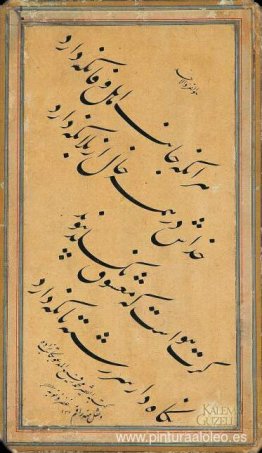 هر آنکه جانب اهل وفا نگه دارد
خداش در همه حال از بلا نگه دارد
گرت هواست که معشوق نگسلد پیوند
نگاه دار سر رشته تا نگه دارد
KALEM GUZELI
www.pinturaaloleo.es